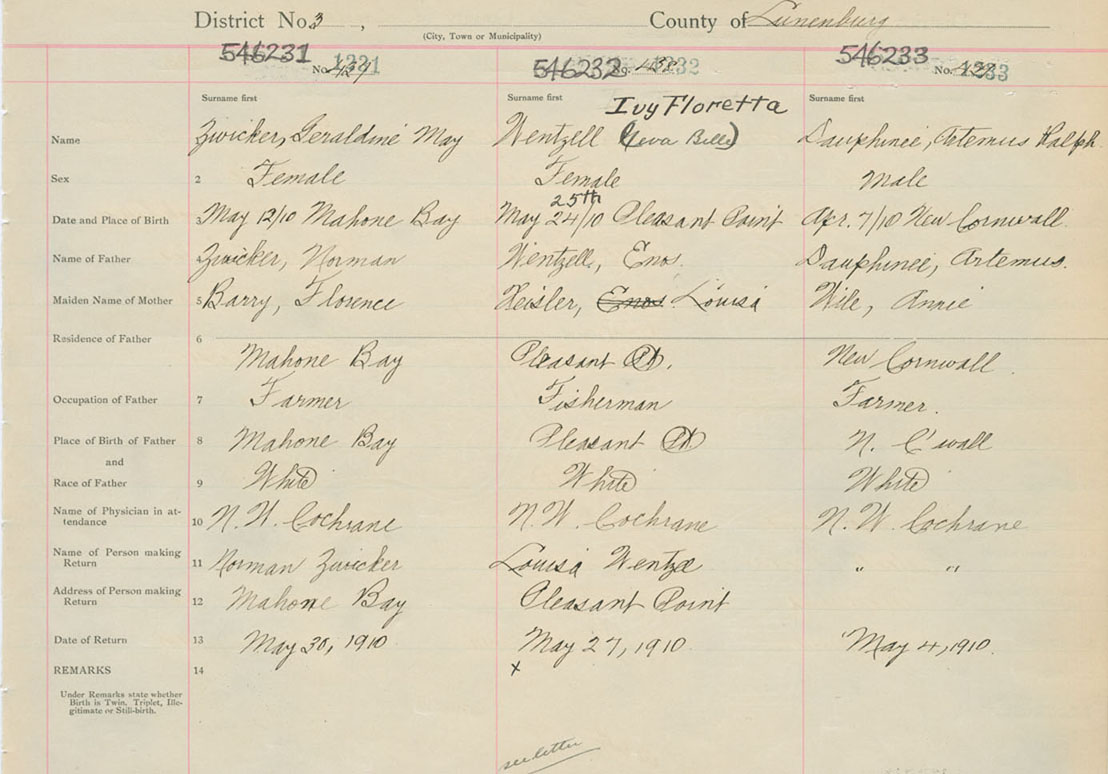 District No. 3 , County of Lunenburg
(City, Town or Municipality)
546231 546232 546233
No. 1231 No. 1232 No. 1233
Surname first Surname first Ivy Floretta Surname first
Name Zwicker, Geraldine May Wentzell (Neva Belle) Dauphinee, Artemus Ralph
Sex 2 Female Female Male
25th
Date and Place of Birth May 12/10 Mahone Bay May 24/10 Pleasant Point Apr. 7/10 New Cornwall.
Name of Father 4 Zwicker, Norman Wentzell, Enos. Dauphinee, Artemus.
Maiden Name of Mother 5 Barry, Florence Heisler, Enos Louisa Wile, Annie
Residence of Father 6
Mahone Bay Pleasant Pt. New Cornwall.
Occupation of Father 7 Farmer Fisherman Farmer.
Place of Birth of Father 8 Mahone Bay Pleasant Pt N. C'wall
and
Race of Father 9 White White White
Name of Physician in at-
tendance 10 N. W. Cochrane N. W. Cochrane N. W. Cochrane
Name of Person making
Return 11 Norman Zwicker Louisa " "
Address of Person making
Return 12 Mahone Bay Pleasant Point
Date of Return 13 May 30, 1910 May 27, 1910. May 4, 1910.
REMARKS 14 x
Under Remarks state whether
Birth is Twin, Triplet, Ille-
gitimate or Still-birth.
see letter